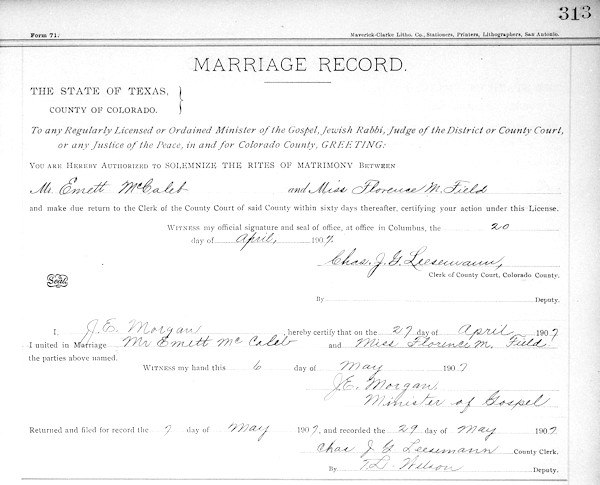 313
Form 71.
Maverick-Clarke Litho. Co., Stationers, Printers, Lithographers, San Antonio.
MARRIAGE RECORD.
THE STATE OF TEXAS,
COUNTY OF COLORADO.
To any Regularly Licensed or Ordained Minister of the Gospel, Jewish Rabbi, Judge of the District or County Court,
or any Justice of the Peace, in and for Colorado County, GREETING:
YOU ARE HEREBY AUTHORIZED TO SOLEMNIZE THE RITES OF MATRIMONY BETWEEN
Mr. Emett McCaleb and Miss Florence M. Field
and make due return to the Clerk of the County Court of said County within sixty days thereafter, certifying your action under this License.
WITNESS my official signature and seal of office, at office in Columbus, the 20
day of April, 1907.
Chas. J. G. Leesemann,
Clerk of County Court, Colorado County.
Seal
By Deputy.
I, J. E. Morgan, hereby certify that on the 27 day of April 1907
I united in Marriage Mr Emett McCaleb and Miss Florence M. Field
the parties above named.
WITNESS my hand this 6 day of May 1907
J. E. Morgan,
Minister of Gospel
Returned and filed for record the 7 day of May 1907, and recorded the 29 day of May 1907.
Chas J G Leesemann County Clerk.
By T. D. Wilson Deputy.